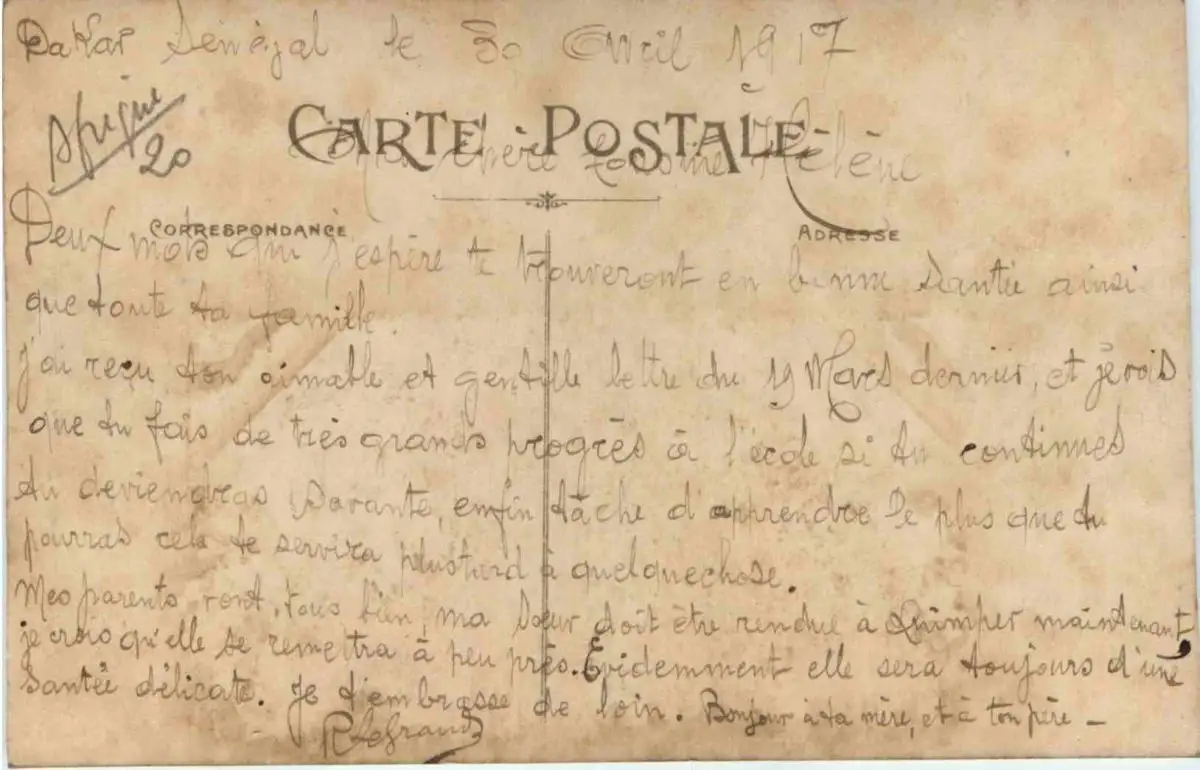 Dakar Sénégal le 30 Avril 1917
Afrique
20
CARTE POSTALE
Ma chère Cousine Hélène
CORRESPONDANCE
ADRESSE
Deux mots qui j'espère te trouveront en bonne Santée ainsi
que toute ta famille.
J'ai reçu ton aimable et gentille lettre du 19 Mars dernier, et je vois
que tu fais de très grands progrès à l'école si tu continues
tu deviendras Savante, enfin tâche d'apprendre le plus que tu
pourras cela te servira plustard à quelquechose.
Mes parents vont tous bien, ma Sœur doit être rendue à Quimper maintenant,
je crois qu'elle se remettra à peu près. Evidemment elle sera toujours d'une
Santée délicate. Je t'embrasse de loin. Bonjour à ta mère, et à ton père -
Legrand